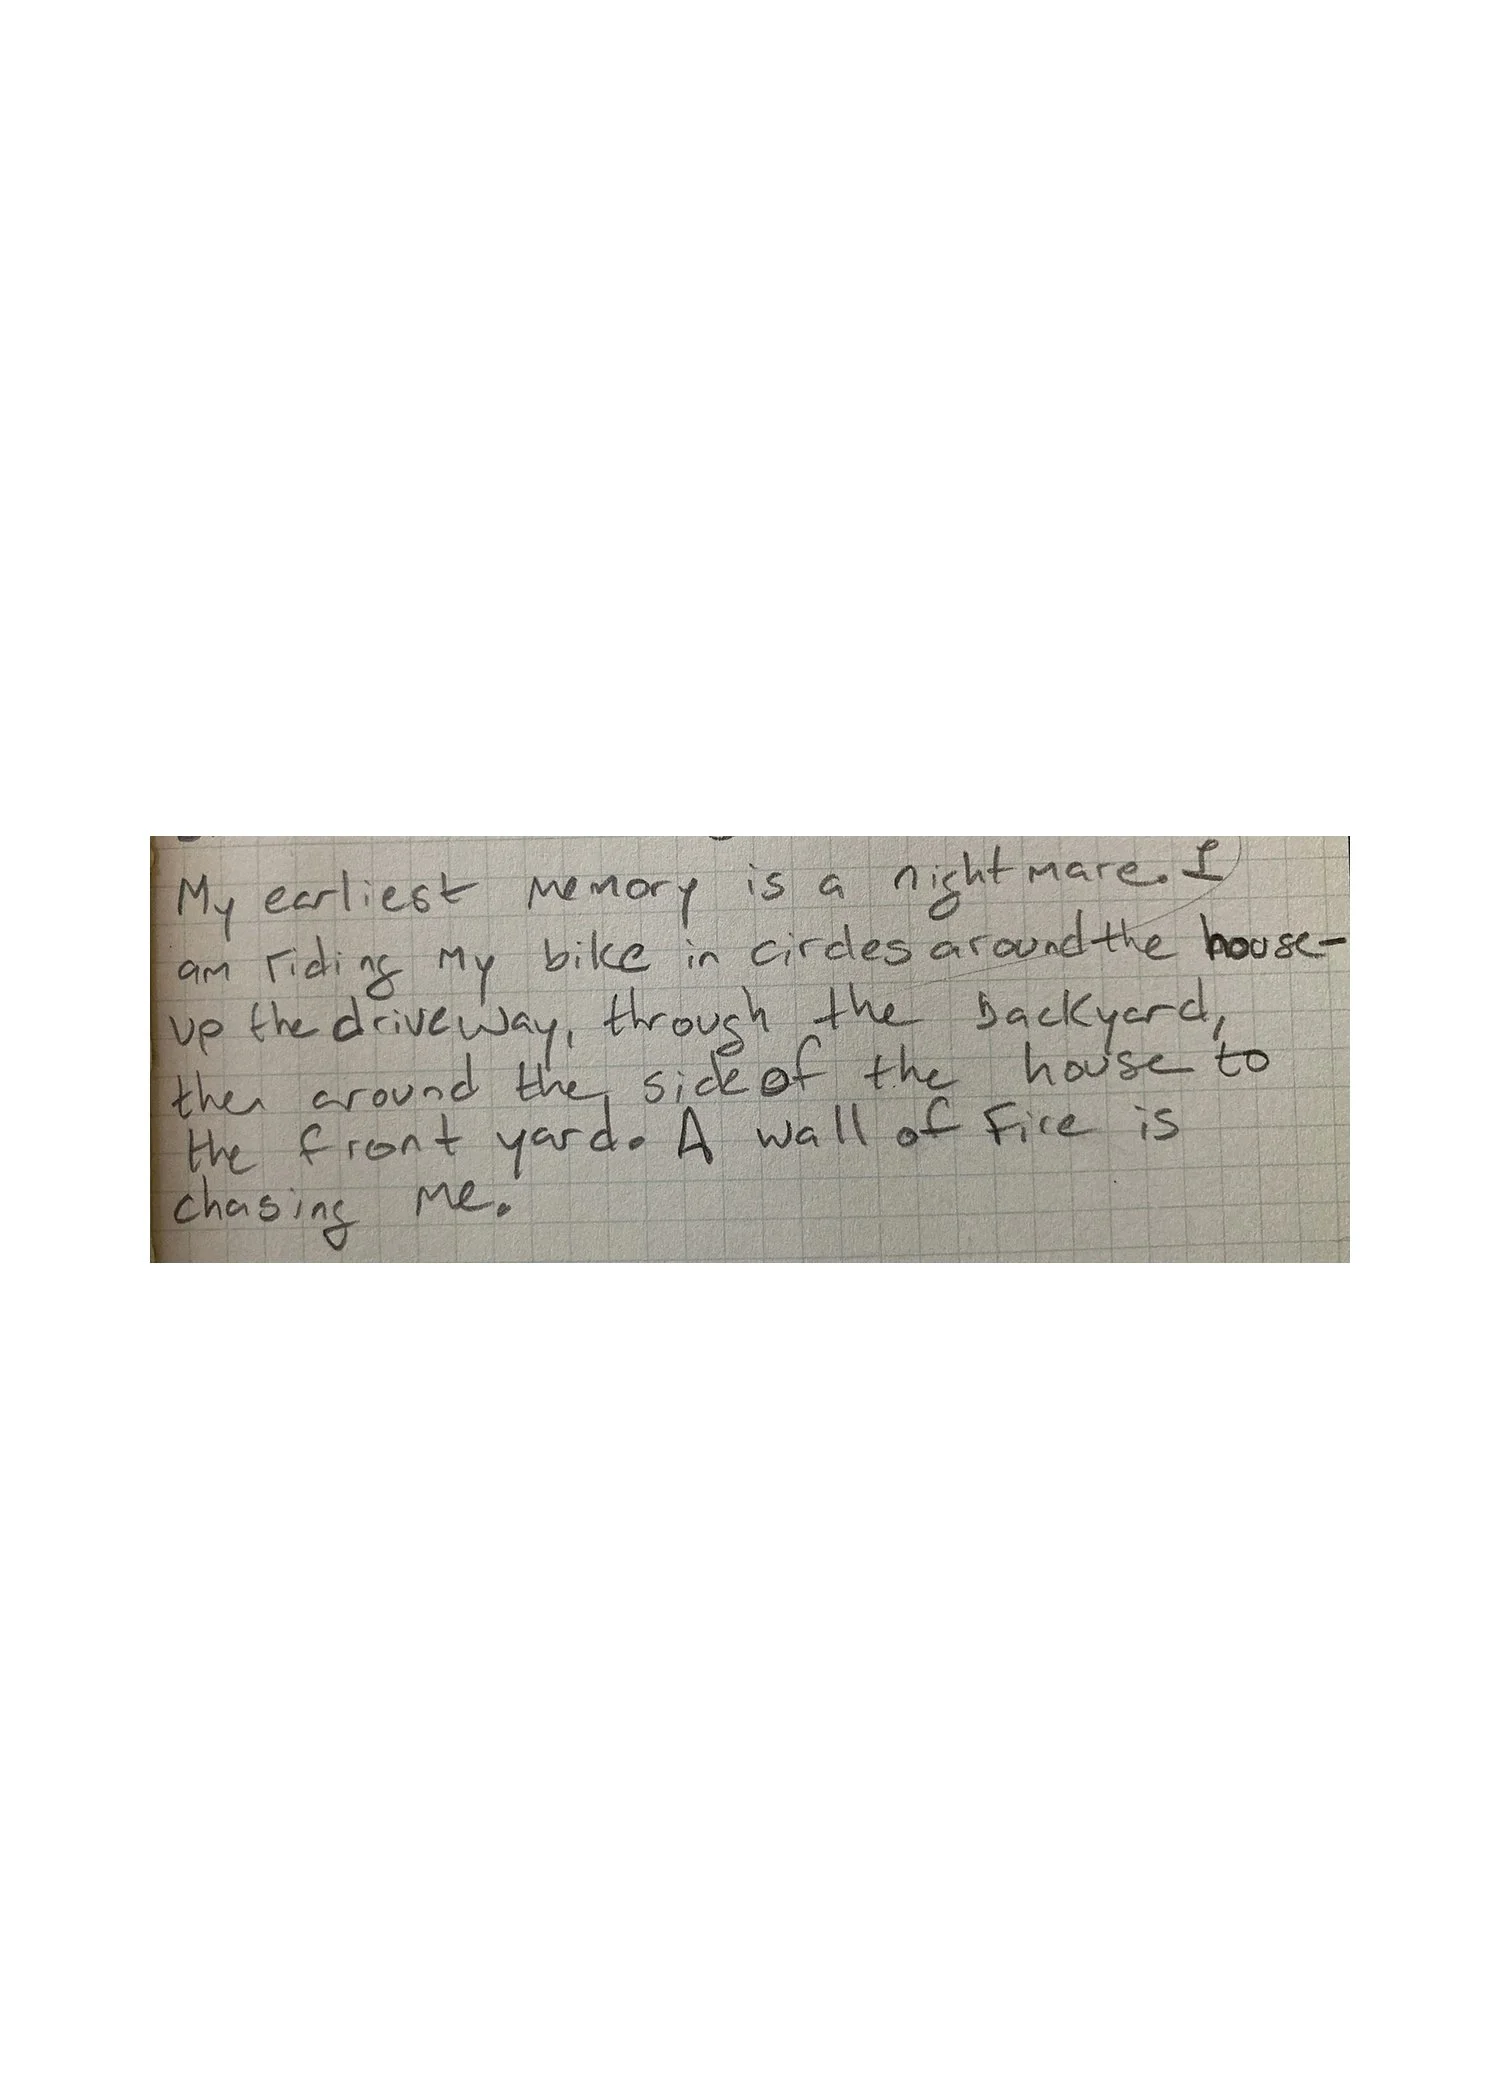 My earliest memory is a nightmare. I
am riding my bike in circles around the house-
up the driveway, through the backyard,
then around the side of the house to
the front yard. A wall of fire is
chasing me.